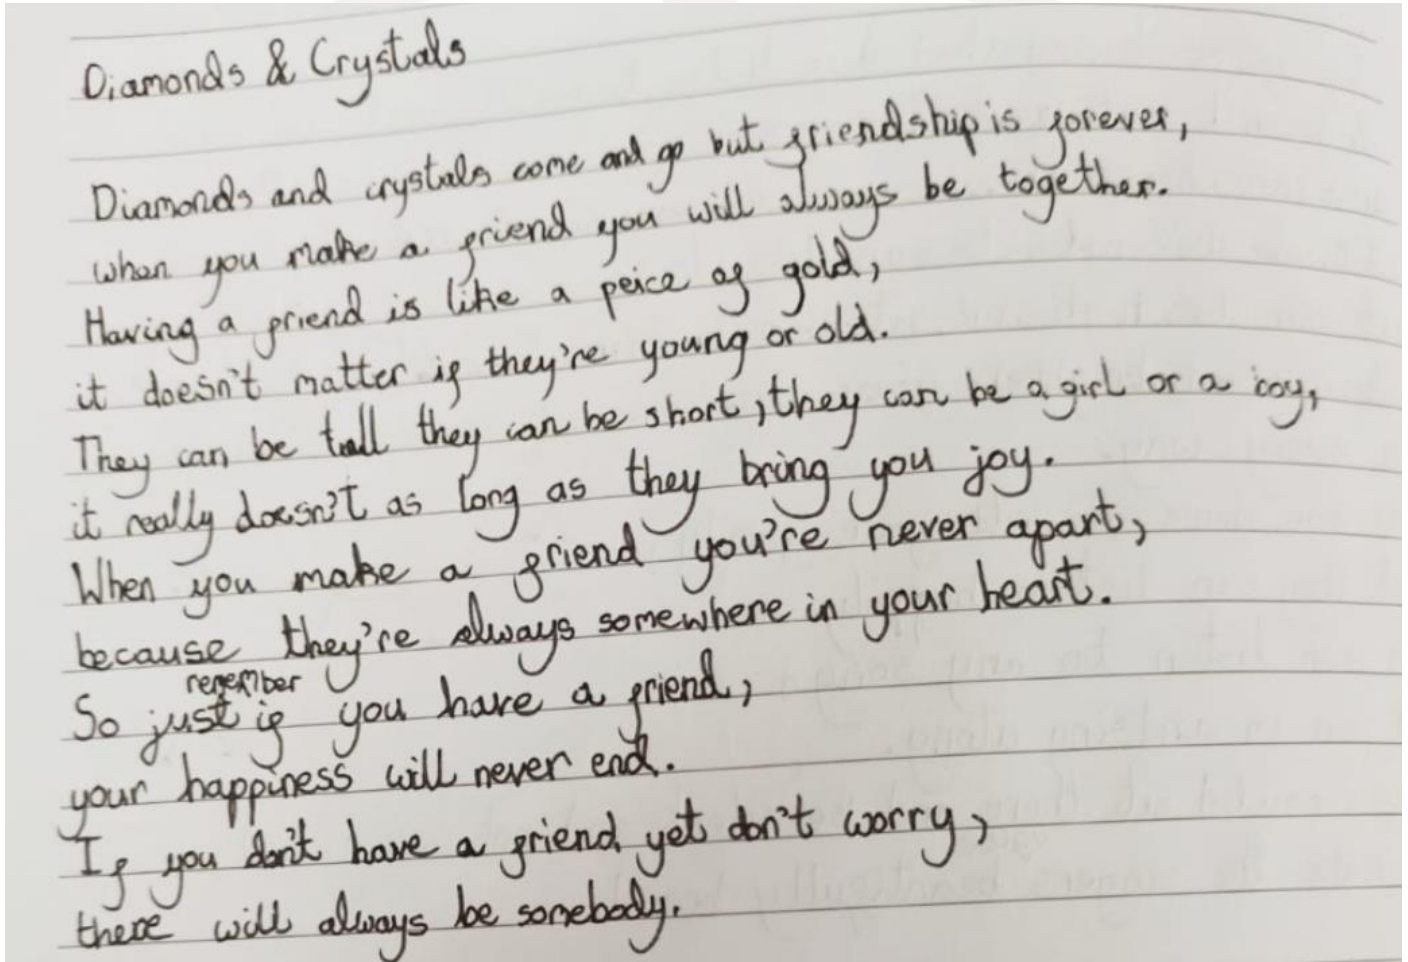 Diamonds & Crystals
Diamonds and crystals come and go but friendship is forever,
when you make a friend you will always be together.
Having a friend is like a peice of gold,
it doesn't matter if they're young or old.
They can be tall they can be short, they can be a girl or a boy,
it really doesn't as long as they bring you joy.
When you make a friend you're never apart,
because they're always somewhere in your heart.
remember
So just if you have a friend,
your happiness will never end.
If you don't have a friend yet don't worry,
there will always be somebody.